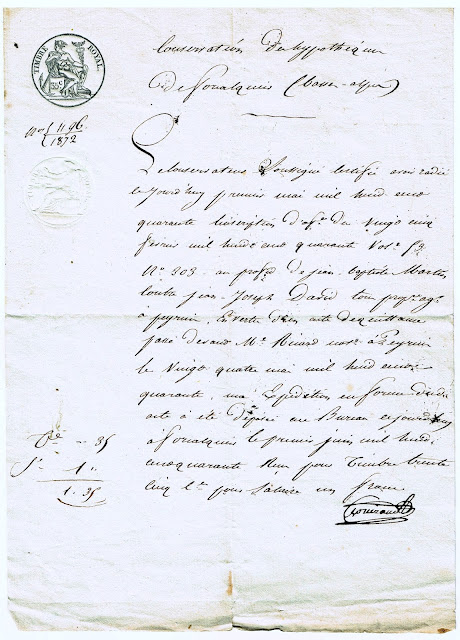 TIMBRE ROYAL
35 c
Conservation des hypothèques
de Forcalquier (basses-alpes)
Nos { 1196
{ 1872
Le Conservateur Soussigné certifie avoir radié
le jourd'huy premier mai mil huit cent
quarante l'inscription d'off. du vingt cinq
février mil huit cent quarante Vol. 53
N° 203 au profit de jean baptiste Martin
contre jean Joseph David tous prop.
à peyruis, En vertu d'un acte de quittance
passé devant Me. Ricard not. à Peyruis
le vingt quatre mai mil huit cent
quarante, une Expédition en forme dudit
acte à été déposée au Bureau cejourd'huy
a Forcalquier le premier juin mil huit
cent quarante Reçu pour Timbre trente
cinq c. pour Salaire un franc
35
1 "
1. 35